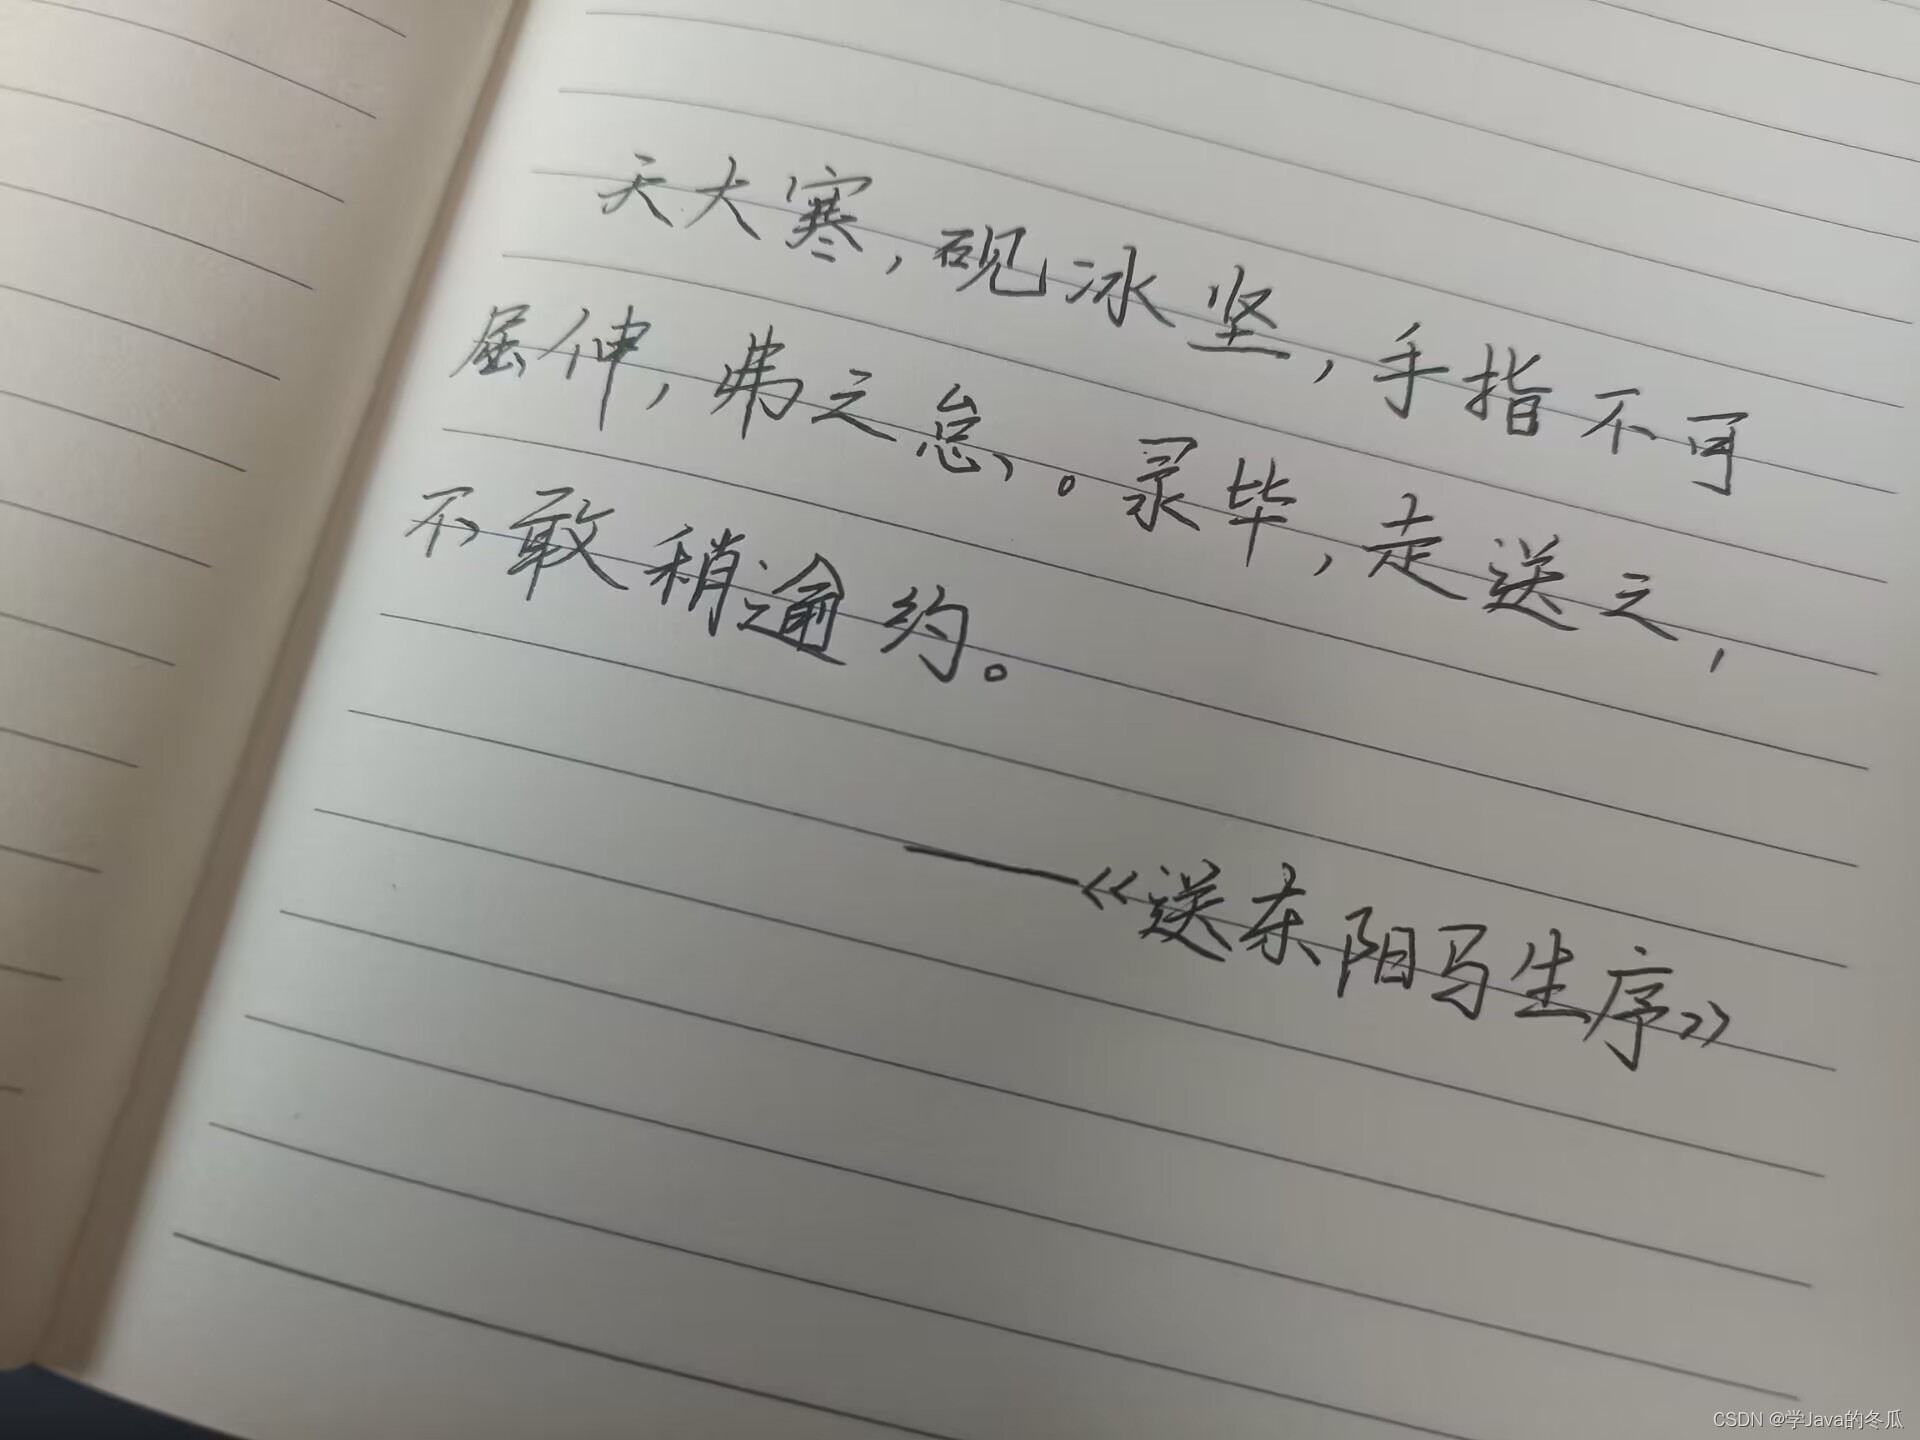 天大寒，砚冰坚，手指不可
屈伸，弗之怠。录毕，走送之，
不敢稍逾约。
——《送东阳马生序》
CSDN @学Java的冬瓜